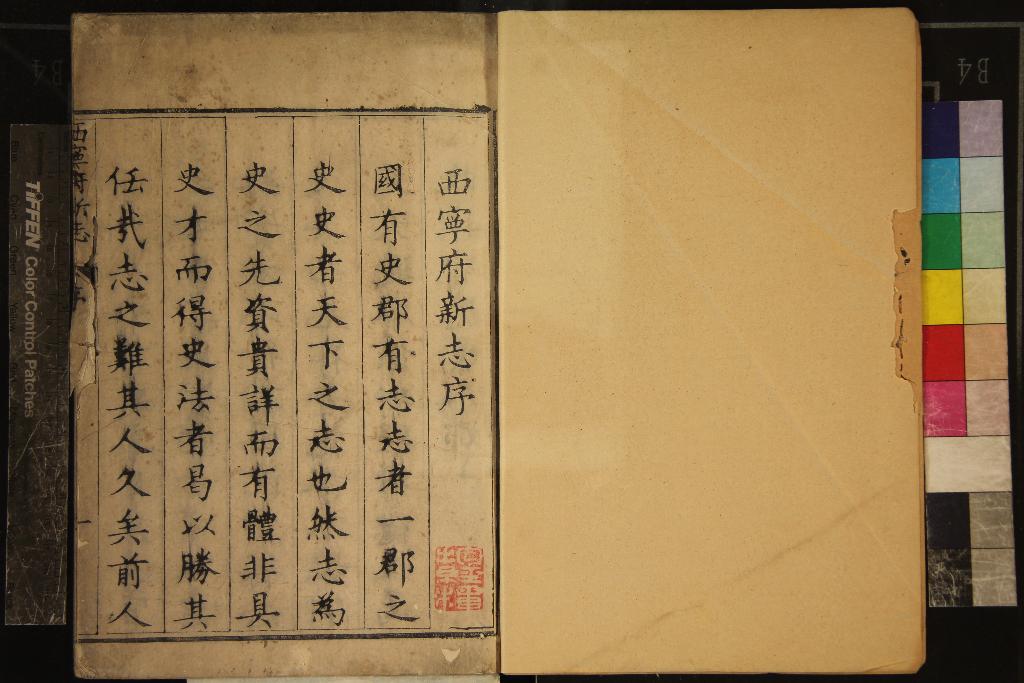 西寧府新志序
國有史郡有志志者一郡之
史史者天下之志也然志為
史之先資貴詳而有體非具
史才而得史法者曷以勝其
任㢤志之難其人久矣前人
西寧府新志
序
一
TIFFEN Color Control Patches
B4
B4